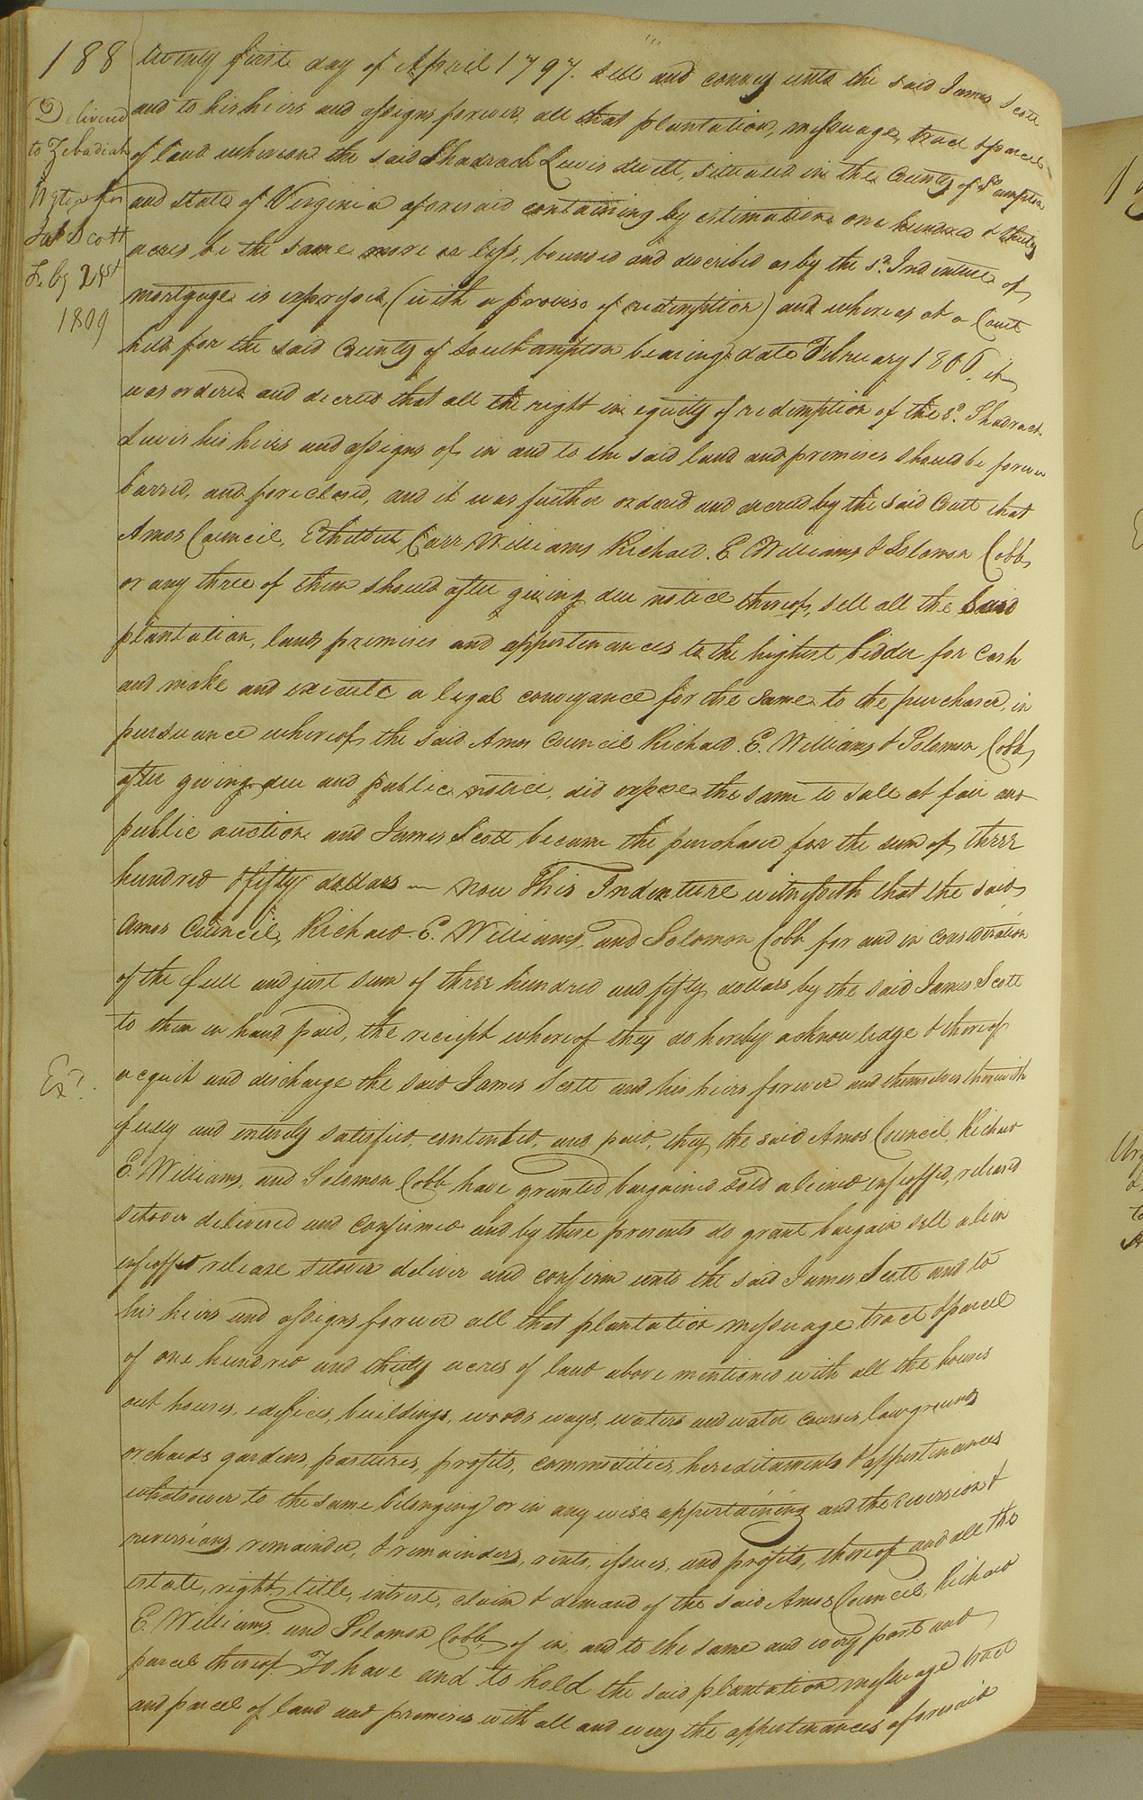 188
Delivered
to Zebadiah
for
Jas. Scott
Feby 21st
1809
Exd.
twenty first day of April 1797. sell and convey unto the said James Scott
and to his heirs and assigns forever, all that plantation, messuage, tract & parcel
of land whereon the said Shadrach Lewis dwelt, situated in the County of S.ampton
and State of Virginia aforesaid containing by estimation one hundred & thirty
acres be the same more or less, bounded and described as by the sd. Indenture of
mortgage is expressed, (with a proviso of redemption) and whereas at a Court
held for the said County of Southampton bearing date February 1806, it
was ordered and decreed that all the right in equity of redemption of the sd. Shadrach
Lewis his heirs and assigns of in and to the said land and premises should be forever
barred, and foreclosed, and it was further ordered and decreed by the said Court that
Amos Council, Etheldred Carr Williams Richard. E Williams & Solomon Cobb,
or any three of them should after giving due notice thereof, sell all the said
plantation, land premises and appertenances to the highest bidder for Cash
and make and execute a legal conveyance for the same to the purchaser, in
pursuance whereof, the said Amos Council Richard. E. Williams & Solomon Cobb,
after giving due and public notice, did expose the same to sale at fair and
public auction and James Scott became the purchaser for the sum of three
hundred & fifty dollars — now This Indenture witnesseth that the said
Amos Council, Richard. E. Williams, and Solomon Cobb for and in consideration
of the full and just sum of three hundred and fifty dollars by the said James Scott
to them in hand paid, the receipt whereof they do hereby acknowledge & thereof
acquit and discharge the said James Scott and his heirs forever and themselves therewith
fully and entirely satisfied, contented, and paid, they the said Amos Council, Richard
E. Williams, and Solomon Cobb have granted bargained sold aliened enfeoffed, released
setover delivered and confirmed and by these presents do grant bargain sell alien
enfeoffed release setover deliver and confirm unto the said James Scott and to
his heirs and assigns forever all that plantation messuage tract & parcel
of one hundred and thirty acres of land above mentioned with all the houses
out houses, edifices, buildings, woods ways, waters and water courses, low grounds
orchards gardens, pastures, profits, commodities, hereditaments & appertenances
whatsoever to the same belonging or in any wise appertaining and the reversion &
reversions, remainder, & remainders, rents, issues, and profits, thereof and all the
estate, right, title, interest, claim & demand of the said Amos Council, Richard
E. Williams, and Solomon Cobb, of in, and to the same and every part and
parcel thereof To have and to hold the said plantation messuage tract
and parcel of land and premises with all and every the appertenances aforesaid